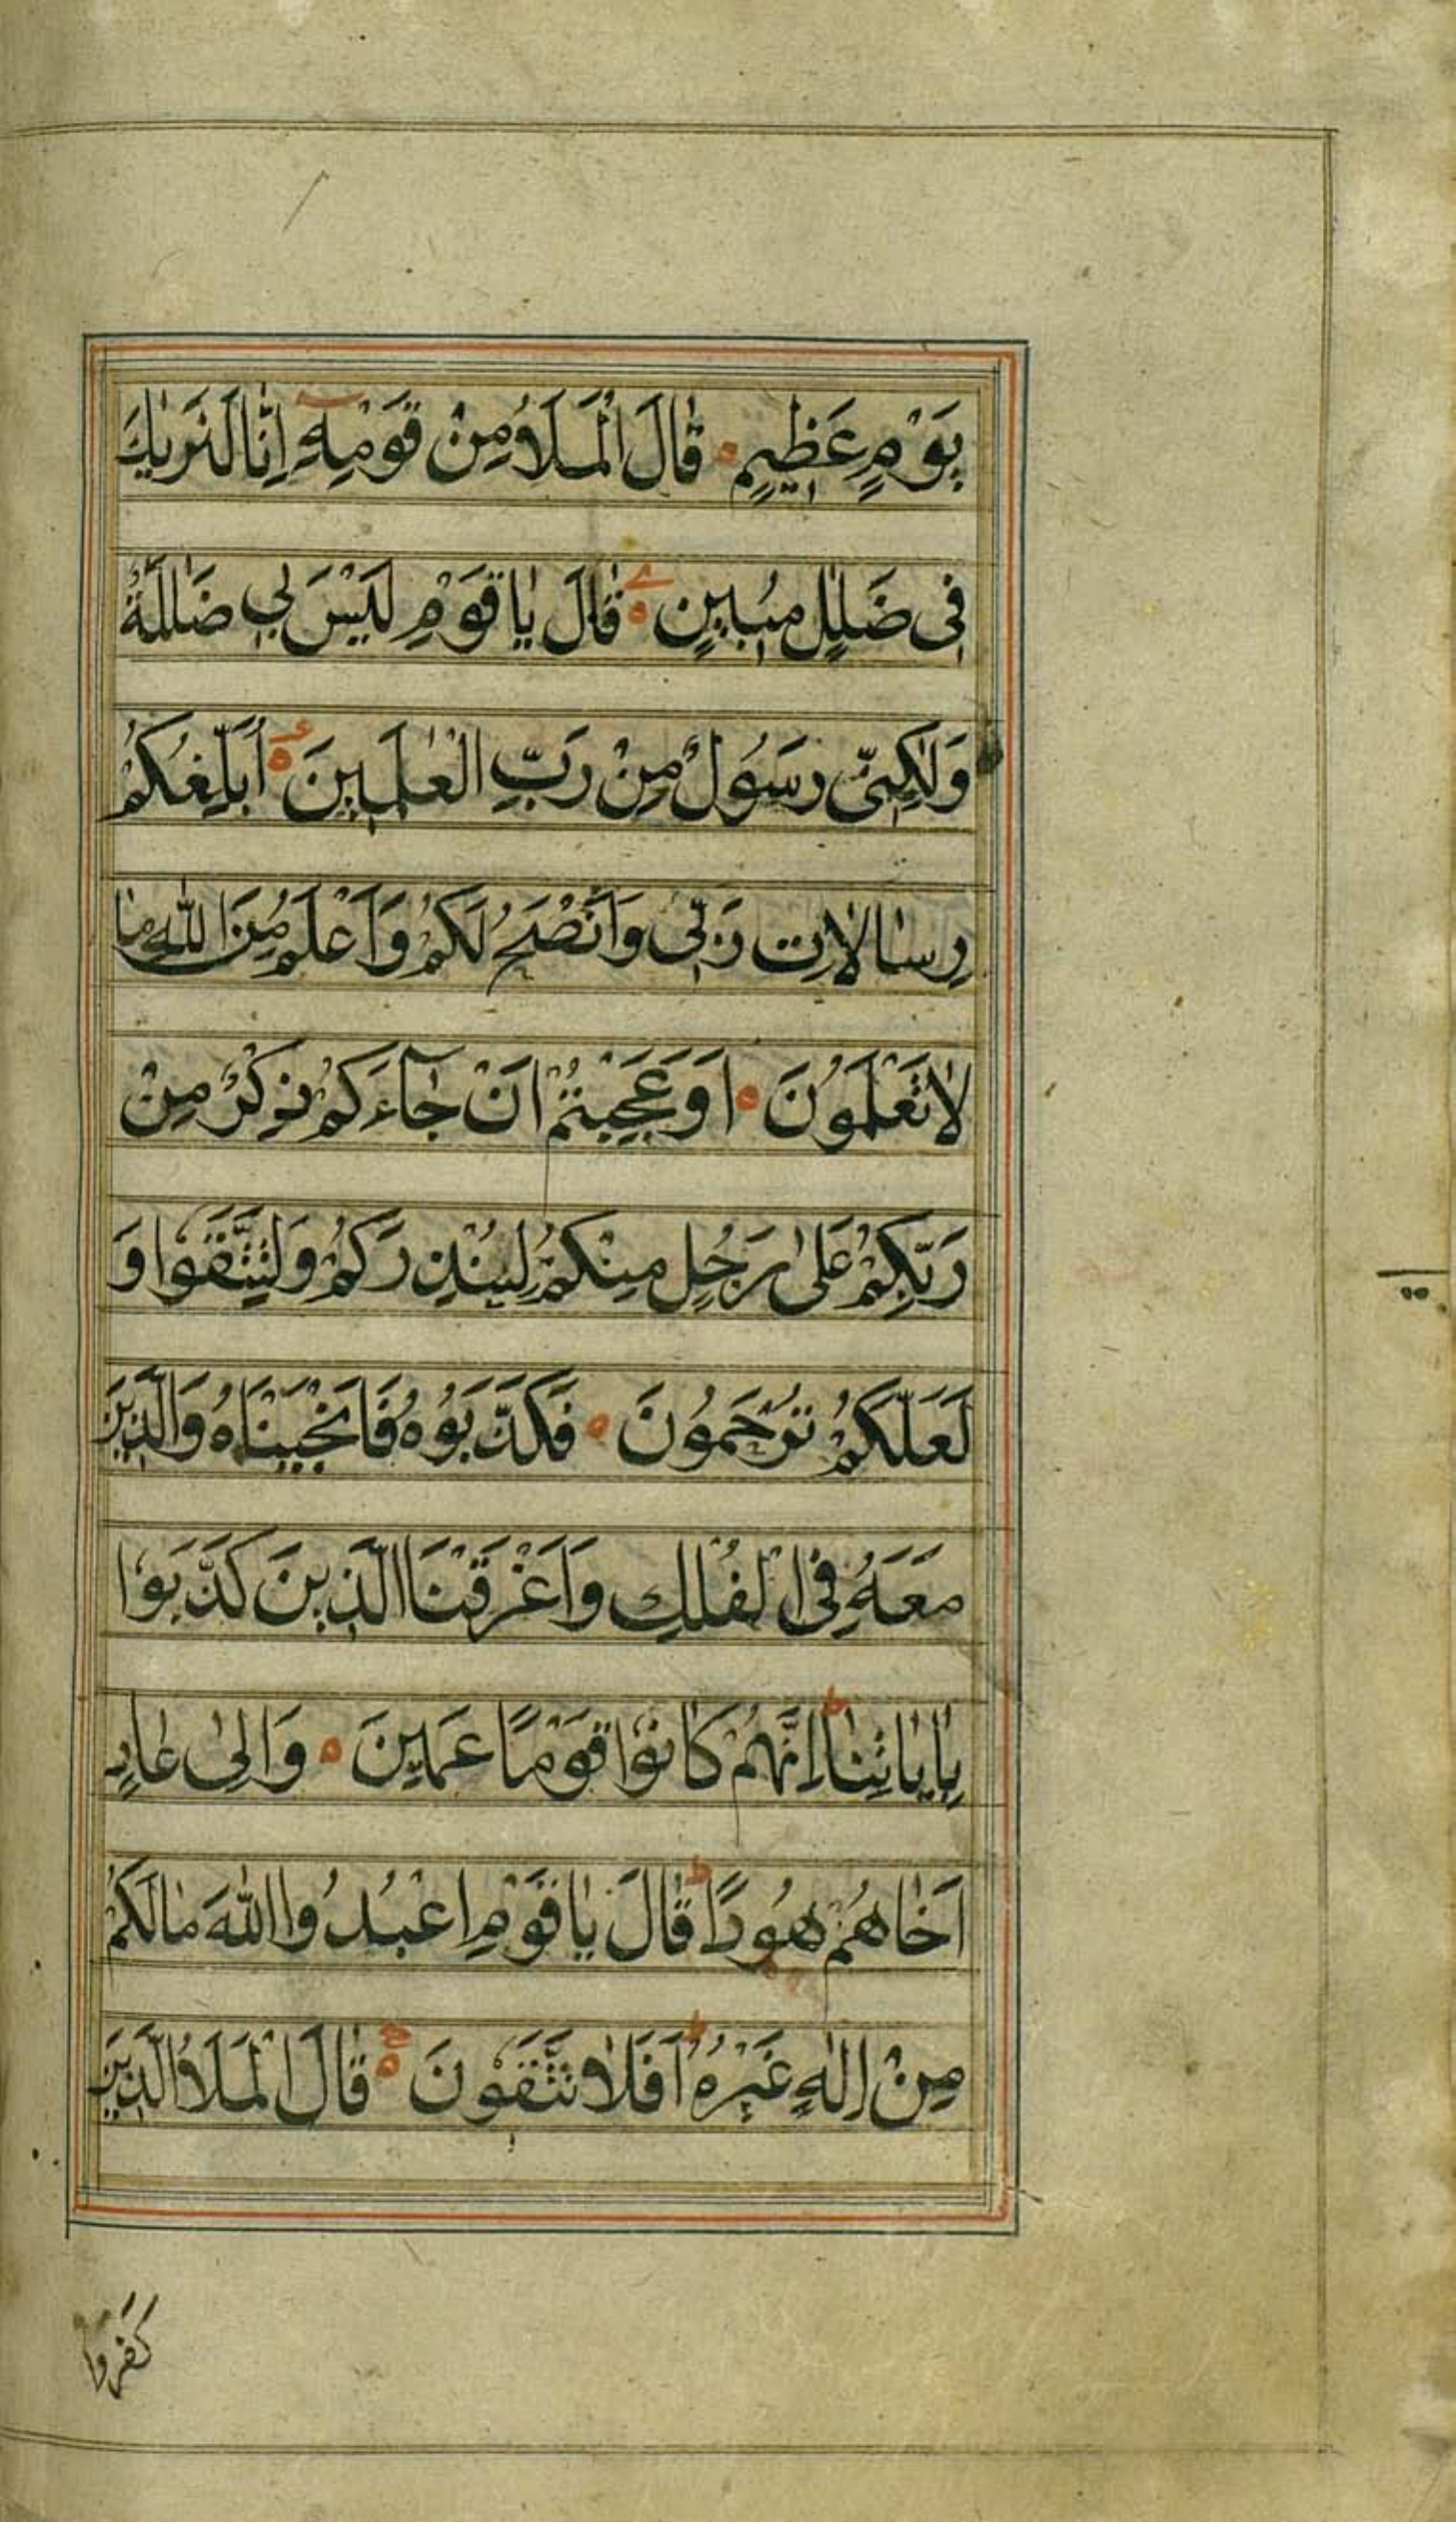 يَوْمٍ عَظِيمٍ ۝ قَالَ الْمَلَاُ مِنْ قَوْمِهٖٓ اِنَّا لَنَرٰيكَ
فِى ضَلٰلٍ مُبِينٍ ۝ قَالَ يَا قَوْمِ لَيْسَ لِي ضَلَالَةٌ
وَلٰكِنّى رَسُولٌ مِنْ رَبِّ الْعٰلَمِينَ ۝ اُبَلِّغُكُمْ
رِسَالَاتِ رَبِّى وَاَنْصَحُ لَكُمْ وَاَعْلَمُ مِنَ اللّٰهِ مَا
لَا تَعْلَمُونَ ۝ اَوَعَجِبْتُمْ اَنْ جَآءَكُمْ ذِكْرٌ مِنْ
رَبِّكُمْ عَلٰى رَجُلٍ مِنْكُمْ لِيُنْذِرَكُمْ وَلِتَتَّقُوا وَ
لَعَلَّكُمْ تُرْحَمُونَ ۝ فَكَذَّبُوهُ فَاَنْجَيْنَاهُ وَالَّذِينَ
مَعَهُ فِى الْفُلْكِ وَاَغْرَقْنَا الَّذِينَ كَذَّبُوا
بِاٰيَاتِنَا ط اِنَّهُمْ كَانُوا قَوْمًا عَمِينَ ۝ وَاِلٰى عَادٍ
اَخَاهُمْ هُودًا ط قَالَ يَا قَوْمِ اعْبُدُوا اللّٰهَ مَا لَكُمْ
مِنْ اِلٰهٍ غَيْرُهُ ط اَفَلَا تَتَّقُونَ ۝ قَالَ الْمَلَاُ الَّذِينَ
كفروا